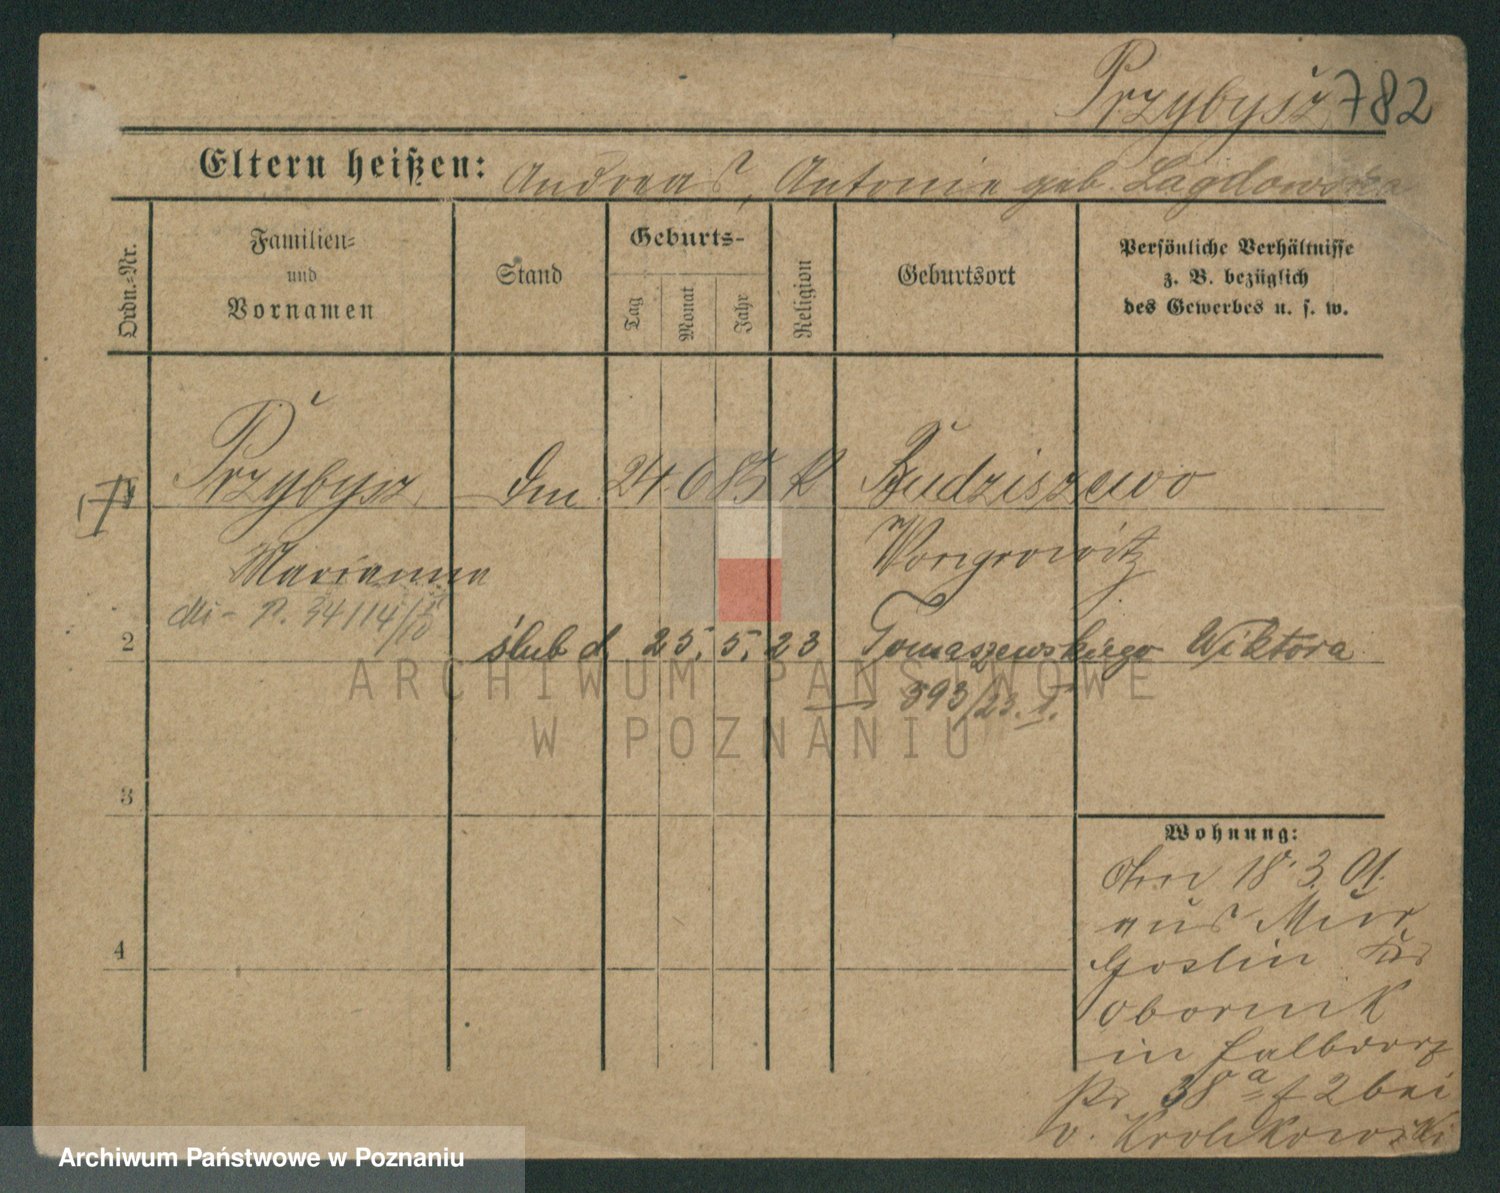 Przybysz 782
Eltern heißen: Andreas, Antonie geb. Lagdowska
Ordn.-Nr.
Familien=
und
Vornamen
Stand
Geburts-
Tag
Monat
Jahr
Religion
Geburtsort
Persönliche Verhältnisse
z. B. bezüglich
des Gewerbes u. s. w.
Przybysz 24 6 85 K Budziszewo
Marianna Wongrowitz
2 ślub d. 25. 5. 23 Tomaszewskiego Wiktora
593/23. I.
3
Wohnung:
18. 3. 01.
aus Mur
4
Goslin
Obornik
in Halbdorf
38 a 2 bei
v. Krolikowski
ARCHIWUM PAŃSTWOWE
W POZNANIU
Archiwum Państwowe w Poznaniu